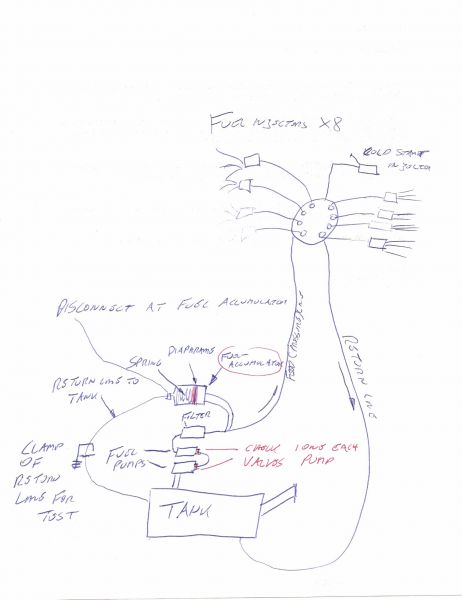 FUEL INJECTORS X8
COLD START
INJECTOR
DISCONNECT AT FUEL ACCUMULATOR
DIAPHRAMS
FUEL
ACCUMULATOR
SPRING
RETURN LINE TO
TANK
FILTER
FEED (PRESSURE) LINE
RETURN LINE
CLAMP
OF
RETURN
LINE FOR
TEST
FUEL
PUMPS
CHECK 1 ONE EACH
VALVES PUMP
TANK